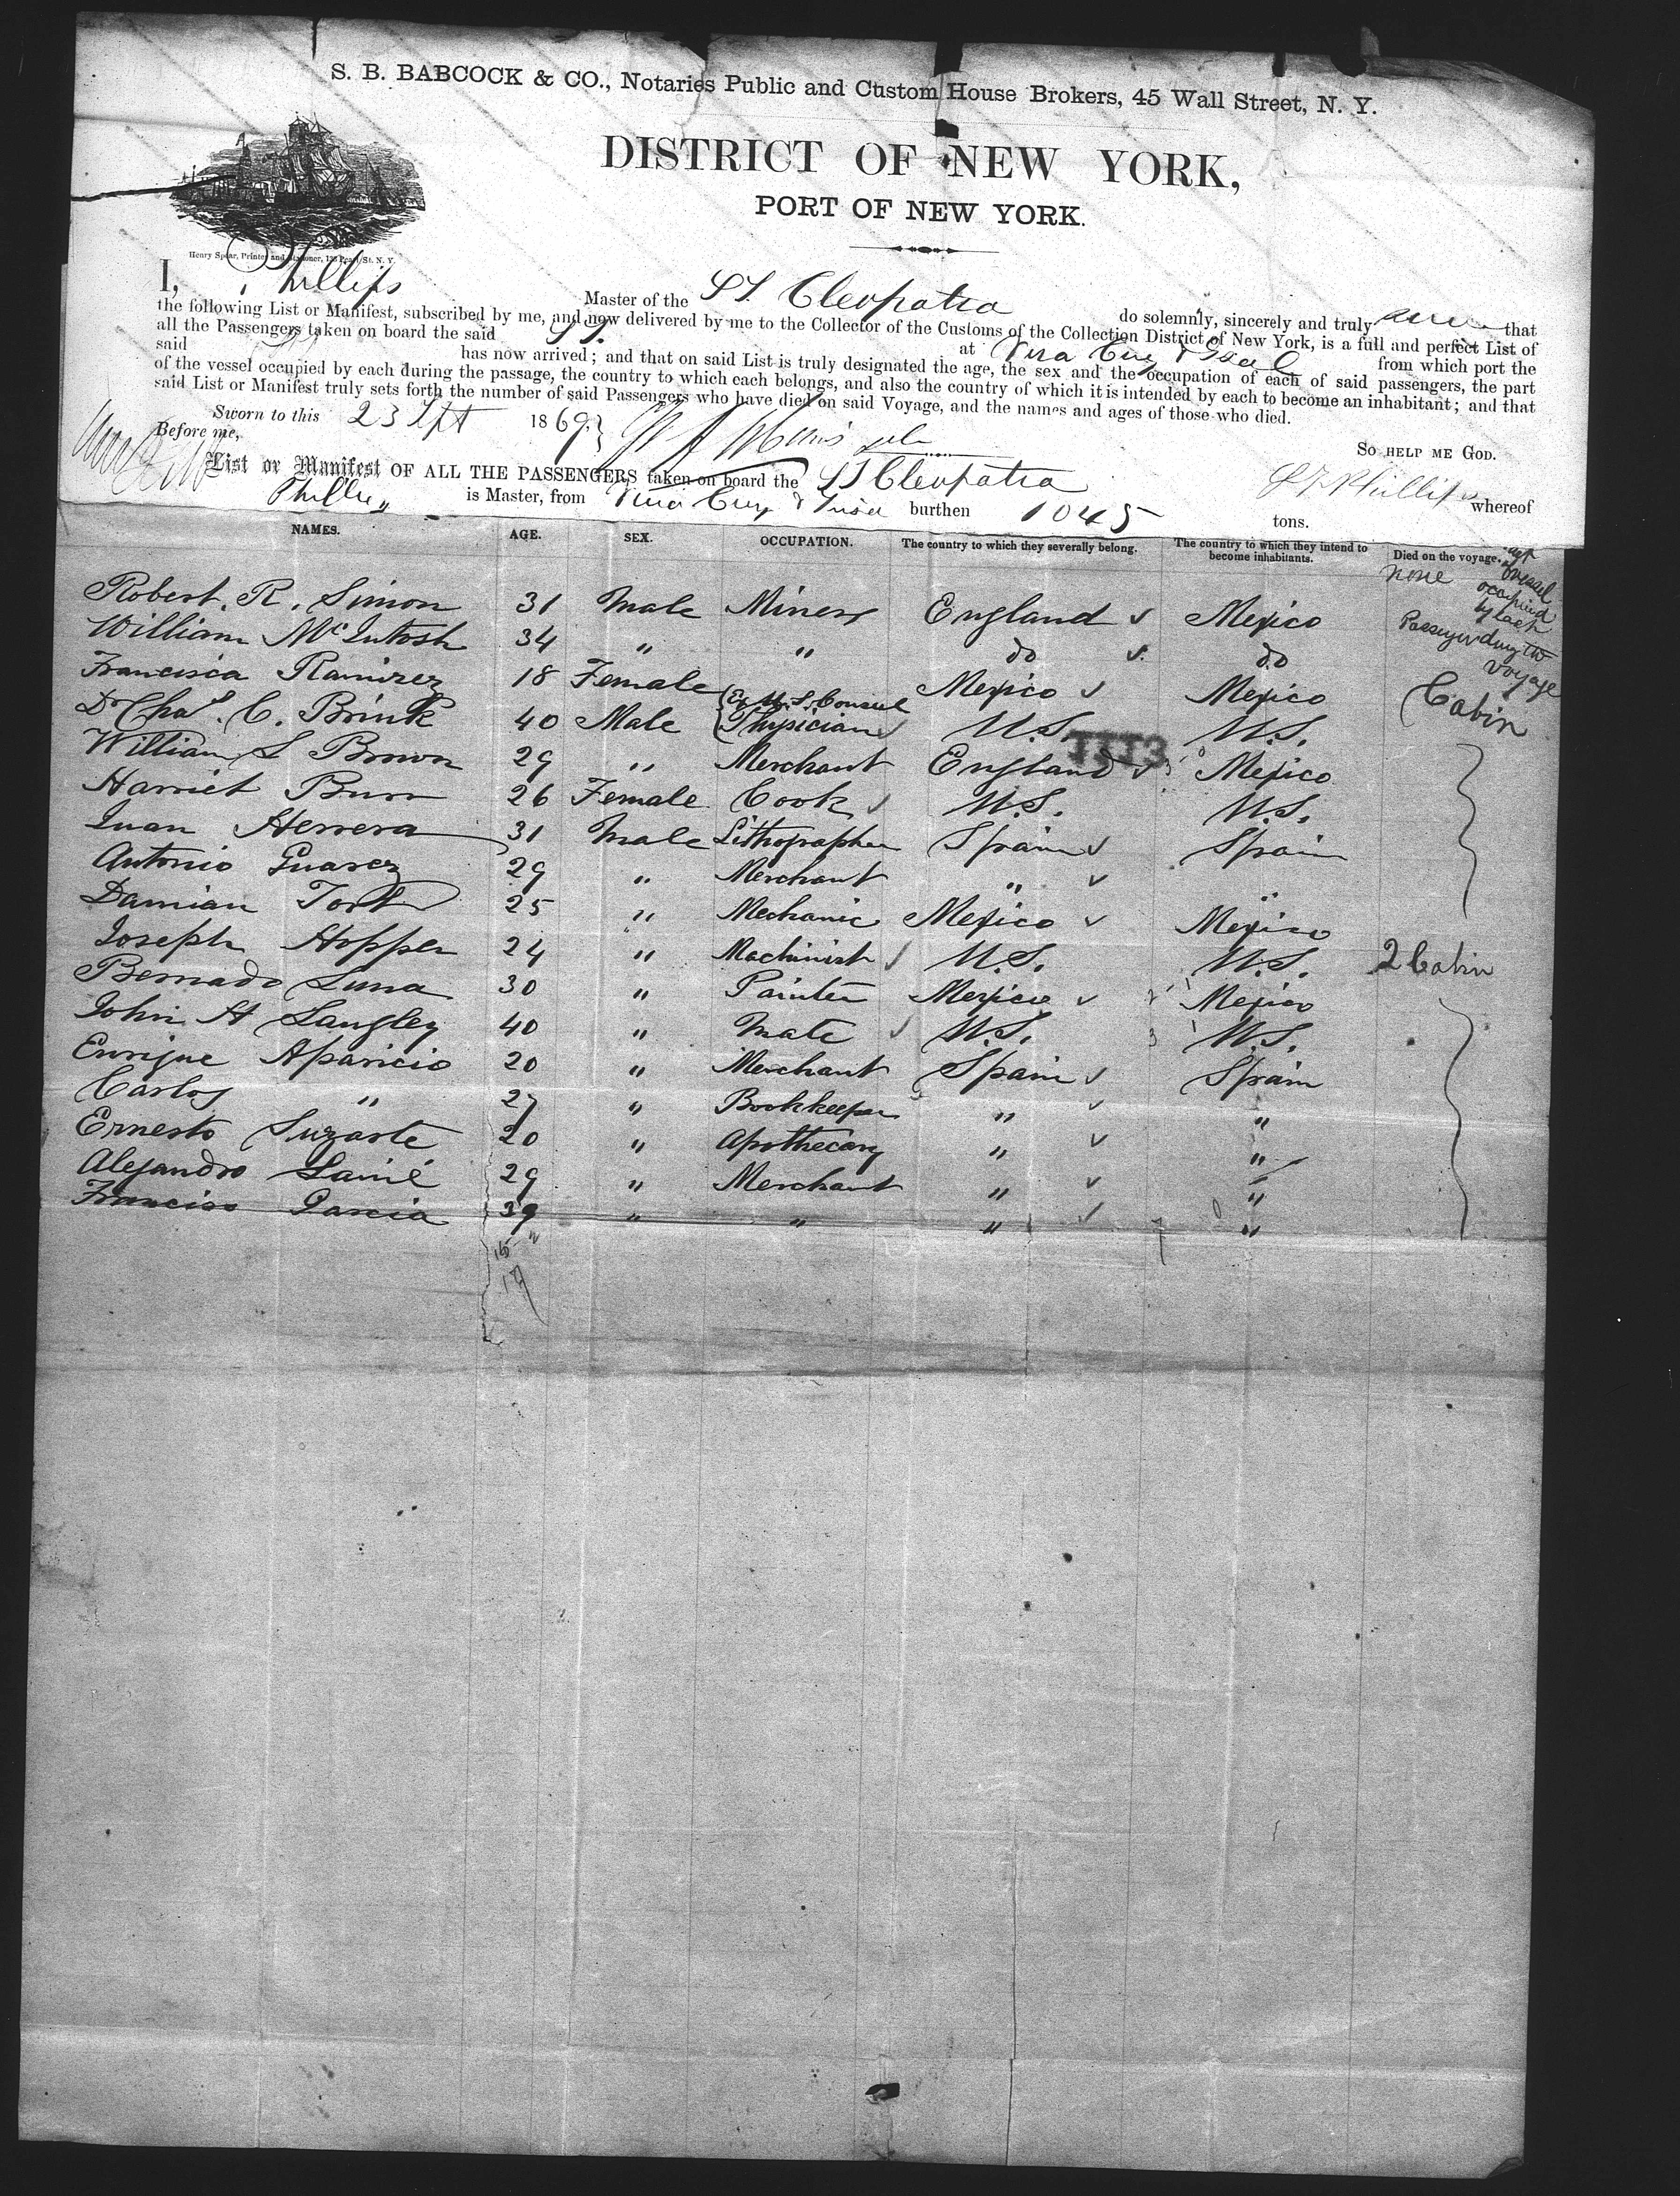 S. B. BABCOCK & CO., Notaries Public and Custom House Brokers, 45 Wall Street, N. Y.
DISTRICT OF NEW YORK,
PORT OF NEW YORK.
Henry Spear, Printer and Stationer, St. N. Y.
I, Phillips Master of the SS. Cleopatra do solemnly, sincerely and truly that
the following List or Manifest, subscribed by me, and now delivered by me to the Collector of the Customs of the Collection District of New York, is a full and perfect List of
all the Passengers taken on board the said SS. at Vera Cruz & from which port the
said has now arrived; and that on said List is truly designated the age, the sex and the occupation of each of said passengers, the part
of the vessel occupied by each during the passage, the country to which each belongs, and also the country of which it is intended by each to become an inhabitant; and that
said List or Manifest truly sets forth the number of said Passengers who have died on said Voyage, and the names and ages of those who died.
Sworn to this 23 Spt 1869
So help me God.
Before me,
List or Manifest OF ALL THE PASSENGERS taken on board the SS Cleopatra whereof
Phillips is Master, from Vera Cruz & burthen 1045 tons.
NAMES. AGE. SEX. OCCUPATION. The country to which they severally belong. The country to which they intend to become inhabitants. Died on the voyage.
none
vessel
occupied
by each
Passenger during the
voyage
Robert. R. Simon 31 Male Miners England ✓ Mexico
William McIntosh 34 " " do ✓ do
Francisca Ramirez 18 Female Mexico ✓ Mexico Cabin
Dr Chas. C. Brink 40 Male Ex U.S. Consul Physician ✓ U.S. U.S.
1113
William S Brown 29 " Merchant England ✓ Mexico
Harriet Burr 26 Female Cook ✓ U.S. U.S.
Juan Herrera 31 Male Lithographer Spain ✓ Spain
Antonio Guarez 29 " Merchant " ✓ "
Damian Tort 25 " Mechanic Mexico ✓ Mexico
Joseph Hopper 24 " Machinist ✓ U.S. U.S. 2 Cabin
Bernado Luna 30 " Painter Mexico ✓ Mexico
John H Langley 40 " Mate ✓ U.S. U.S.
Enrique Aparicio 20 " Merchant Spain ✓ Spain
Carlos " 27 " Bookkeeper " ✓ "
Ernesto Suzarte 20 " Apothecary " ✓ "
Alejandro Lainé 29 " Merchant " ✓ "
Francisco Garcia 39 " " " ✓ "
17